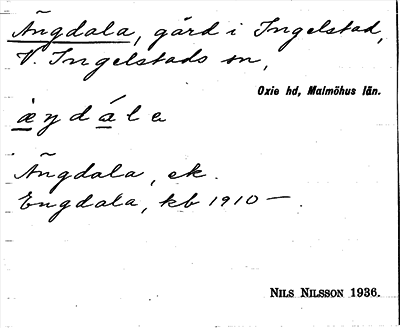 Ängdala, gård i Ingelstad,
V. Ingelstads sn,
Oxie hd, Malmöhus län.
Ängdala, ek.
Engdala, kb 1910—.
NILS NILSSON 1936.